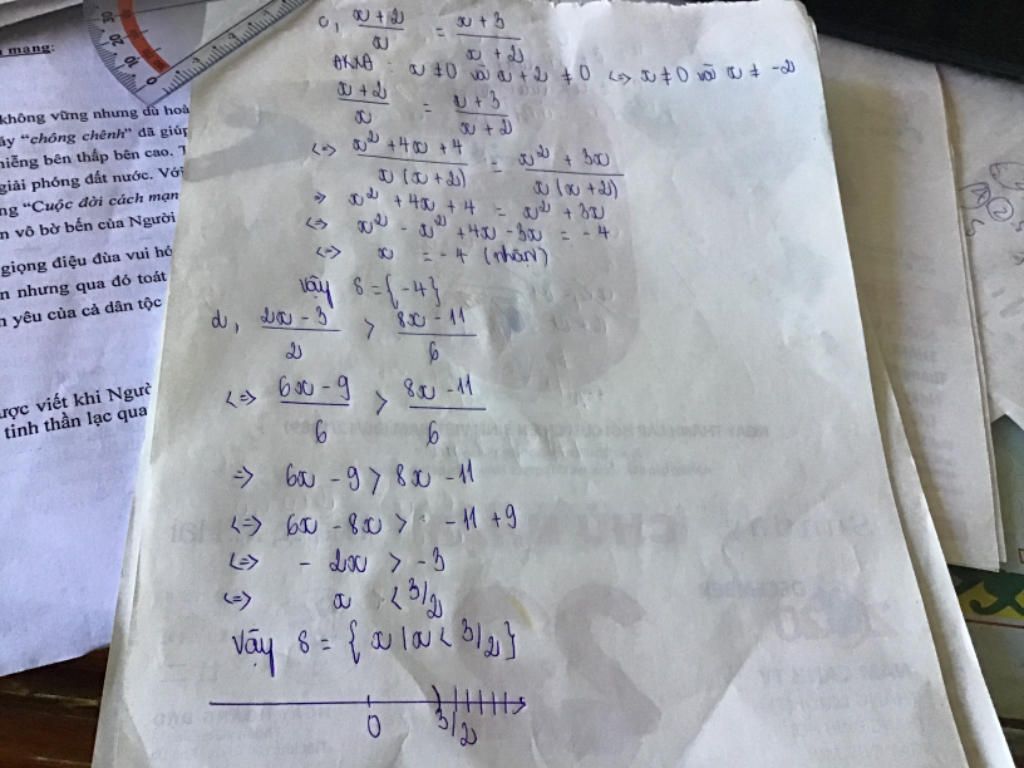 mang:
không vững nhưng dù hoà
ấy “chông chênh” đã giúp
miếng bên thấp bên cao. T
giải phóng đất nước. Với
ng “Cuộc đời cách mạn
n vô bờ bến của Người
giọng điệu đùa vui hó
n nhưng qua đó toát
n yêu của cả dân tộc
ược viết khi Ngườ
tinh thần lạc qua
c, (x+2)/x = (x+3)/(x+2)
ĐKXĐ: x ≠ 0 và x+2 ≠ 0 <=> x ≠ 0 và x ≠ -2
(x+2)/x = (x+3)/(x+2)
<=> (x² +4x +4)/(x(x+2)) = (x² +3x)/(x(x+2))
=> x² +4x +4 = x² +3x
<=> x² - x² +4x -3x = -4
<=> x = -4 (nhận)
Vậy S={-4}
d, (2x-3)/2 > (8x-11)/6
<=> (6x-9)/6 > (8x-11)/6
=> 6x -9 > 8x -11
<=> 6x -8x > -11 +9
<=> -2x > -3
<=> x < 3/2
Vậy S = {x|x < 3/2}
0 3/2